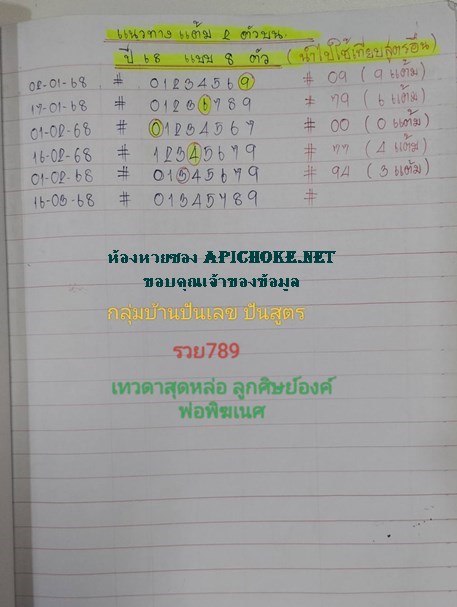 แนวทาง แต้ม 2 ตัวบน.
ปี 68 แบบ 8 ตัว (นำไปใช้เทียบสูตรอื่น)
02-01-68 # 01234569 # 09 (9 แต้ม)
17-01-68 # 01236789 # 79 (6 แต้ม)
01-02-68 # 01234567 # 00 (0 แต้ม)
16-02-68 # 12345679 # 77 (4 แต้ม)
01-02-68 # 01345679 # 94 (3 แต้ม)
16-03-68 # 01345789 #
ห้องหวยซอง APICHOKE.NET
ขอบคุณเจ้าของข้อมูล
กลุ่มบ้านปันเลข ปันสูตร
รวย789
เทวดาสุดหล่อ ลูกศิษย์องค์
พ่อพิฆเนศ